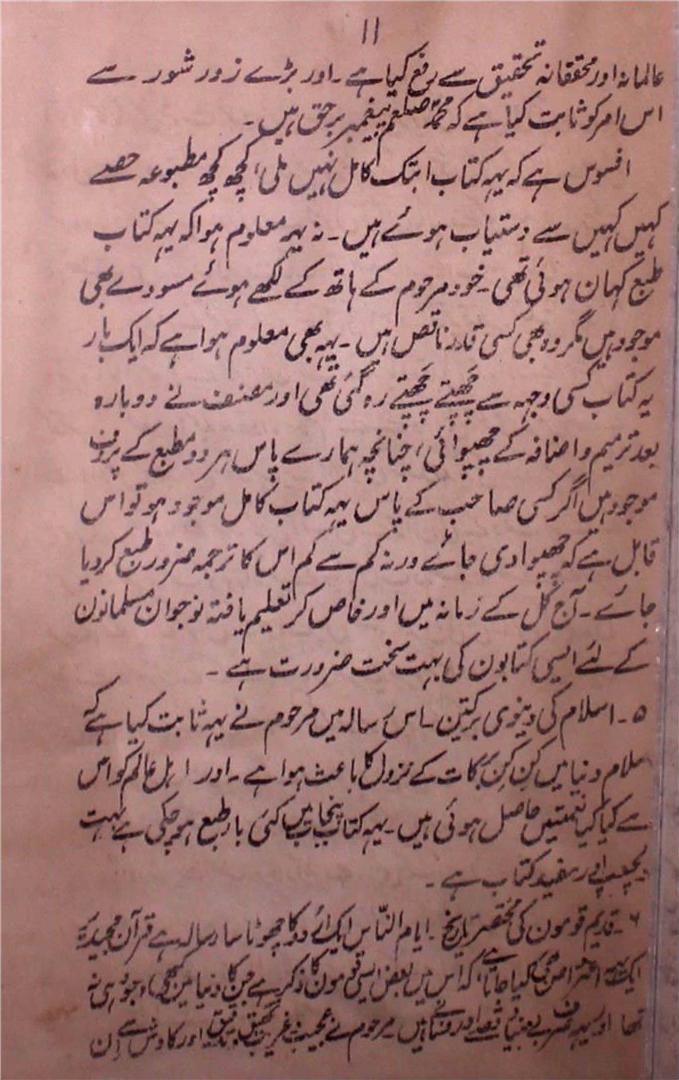 ۱۱
عالمانہ اور محققانہ تحقیق سے رفع کیا ہے ۔ اور بڑے زور شور سے
اس امر کو ثابت کیا ہے کہ محمد صلعم پیغمبر برحق ہیں ۔
افسوس ہے کہ یہہ کتاب ابتک کامل نہیں ملی، کچھ کچھ مطبوعہ حصے
کہیں کہیں سے دستیاب ہوئے ہیں ۔ نہ یہہ معلوم ہوا کہ یہہ کتاب
طبع کہان ہوئی تھی ۔ خود مرحوم کے ہاتھ کے لکھے ہوئے مسودے بھی
موجود ہیں مگر وہ بھی کسی قدر ناقص ہیں ۔ یہہ بھی معلوم ہوا ہے کہ ایک بار
یہ کتاب کسی وجہہ سے چھپتے چھپتے رہ گئی تھی اور مصنف نے دوبارہ
بعد ترمیم و اضافہ کے چھپوائی، چنانچہ ہمارے پاس ہر دو مطبع کے پروف
موجود ہیں اگر کسی صاحب کے پاس یہہ کتاب کامل موجود ہو تو اس
قابل ہے کہ چھپوا دی جائے ورنہ کم سے کم اس کا ترجمہ ضرور طبع کر دیا
جائے ۔ آج کل کے زمانہ میں اور خاص کر تعلیم یافتہ نوجوان مسلمانون
کے لئے ایسی کتابون کی بہت سخت ضرورت ہے ۔
۵ ۔ اسلام کی دنیوی برکتین ۔ اس رسالہ میں مرحوم نے یہہ ثابت کیا ہے کہ
اسلام دنیا میں کن کن برکات کے نزول کا باعث ہوا ہے ۔ اور اہل عالم کو اس
سے کیا کیا نعمتیں حاصل ہوئی ہیں ۔ یہہ کتاب پنجاب میں کئی بار طبع ہو چکی ہے بہت
دلچسپ اور مفید کتاب ہے ۔
۶ ۔ قدیم قومون کی مختصر تاریخ ۔ ایام الناس ایک اردو کا چھوٹا سا رسالہ ہے قرآن مجید پر
ایک یہہ اعتراض بھی کیا جاتا ہے کہ اس میں بعض ایسی قومون کا ذکر ہے جن کا دنیا میں کبھی وجود ہی نہ
تھا اور یہہ صرف بے بنیاد قصے اور فسانے ہیں مرحوم نے عجیب و غریب تحقیق و تدقیق اور کاوش سے ان